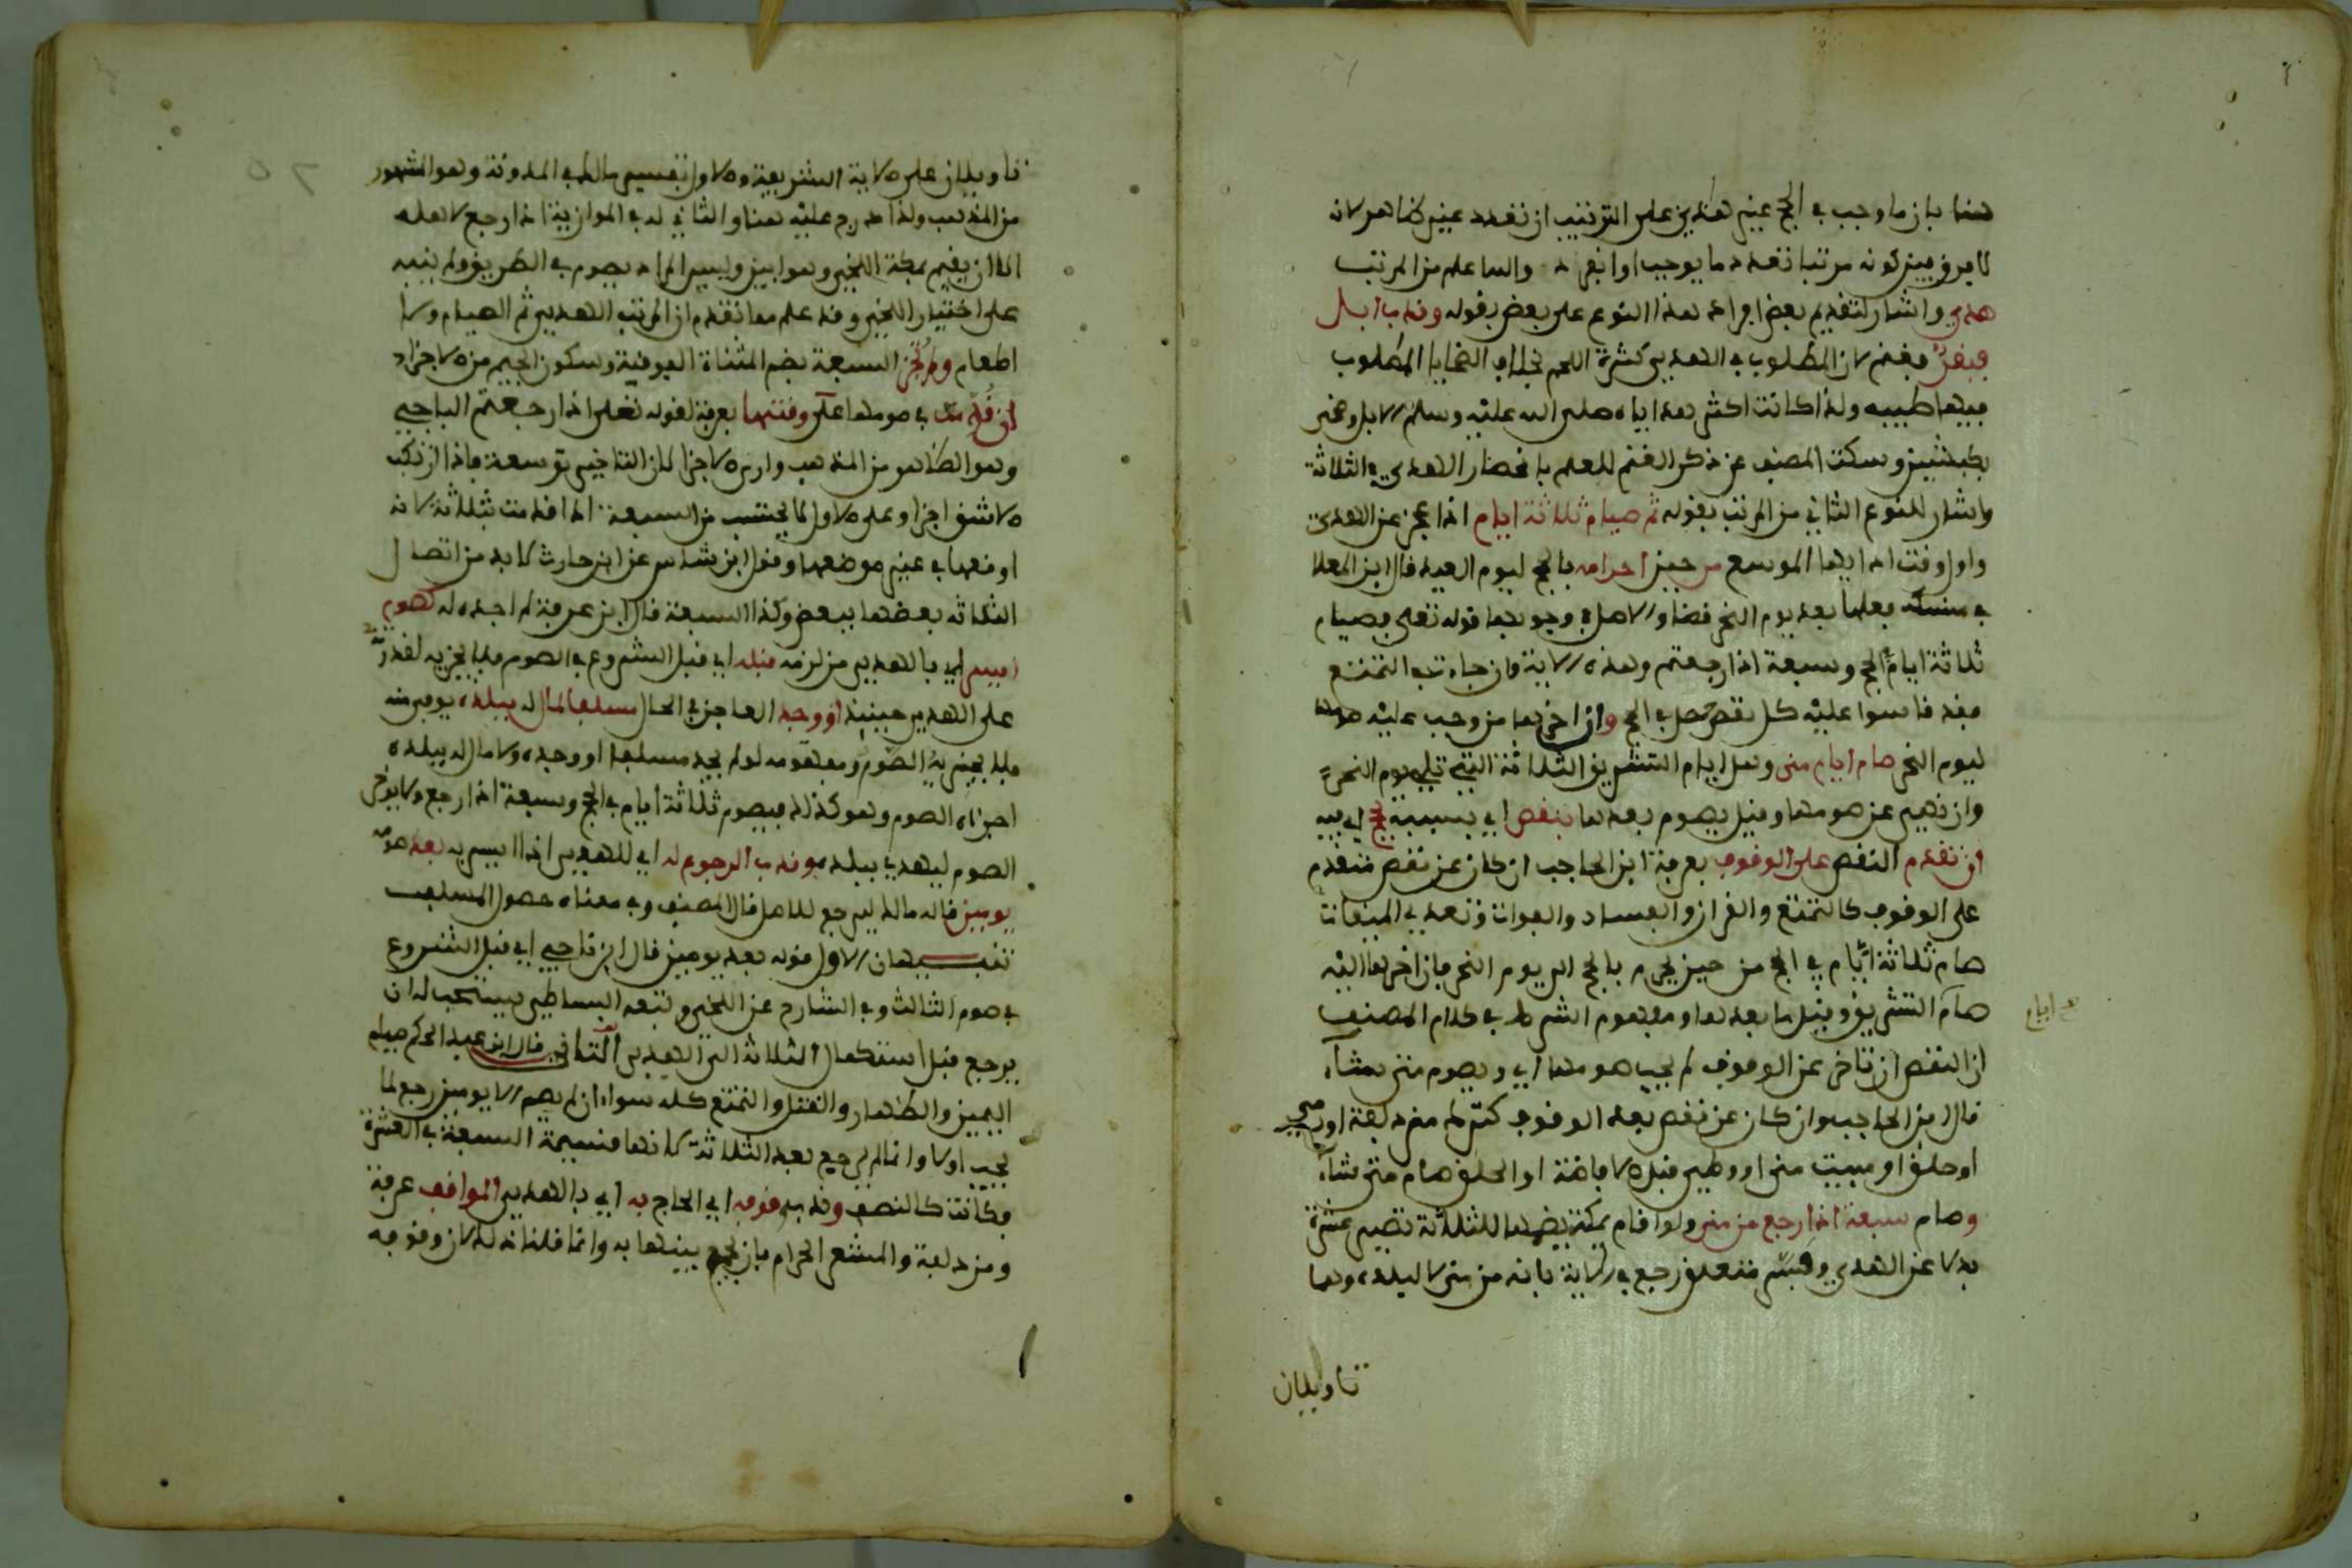 هنا بان ما وجب في الحج عينه هديين على الترتيب ان تعدد عينه كما هر لانه
لا فرق بين كونه مرتبا تعدد ما يوجبه او انفرد والله اعلم من المرتب
هدي واشار لتقديم بعض افراد هذا النوع على بعض بقوله وندب ابل
فبقر فغنم لان المطلوب في الهدي كثرة اللحم بخلاف الضحايا المطلوب
فيها طيبه ولذا كانت اكثر هداياه صلى الله عليه وسلم الابل وضحى
بكبشين وسكت المصنف عن ذكر الغنم للعلم بانحصار الهدي في الثلاثة
واشار للنوع الثاني من المرتب بقوله ثم صيام ثلاثة ايام اذا عجز عن الهدي
واول وقت ادايها الموسع من حين احرامه بالحج ليوم العيد قال ابن المعلا
في منسكه فعلها بعد يوم النحر قضا والاصل في وجوبها قوله تعلى فصيام
ثلاثة ايام في الحج وسبعة اذا رجعتم وهذه الاية وان جاءت في التمتع
فقد قاسوا عليه كل نقص حصل في الحج وان اخرها من وجب عليه صومها
ليوم النحر صام ايام منى وهي ايام التشريق الثلاثة التي تلي يوم النحر
وان نهي عن صومها وقيل يصوم بعدها بنقص اي بسببه بحج اي فيه
ان تقدم النقص على الوقوف بعرفة ابن الحاجب ان كان عن نقص متقدم
على الوقوف كالتمتع والقران والفساد والفوات وتعدي الميقات
صام ثلاثة ايام في الحج من حين يحرم بالحج الى يوم النحر فان اخرها اليه
صام التشريق وقيل ما بعدها ومفهوم الشرط في كلام المصنف
ع ايام
ان النقص ان تاخر عن الوقوف لم يجب صومها اي ويصوم متى شاء
قال ابن الحاجب وان كان عن نقص بعد الوقوف كترك مزدلفة او رمي
او حلق او مبيت منى او وطي قبل الافاضة او الحلق صام متى شاء
وصام سبعة اذا رجع من منى ولو اقام بمكة بضمها للثلاثة تصير عشرة
بدلا عن الهدي وفسر متعلق رجع في الاية بانه من منى لا لبلده وهما
تاويلان
تاويلان على الاية الشريفة والاول تفسير مالك في المدونة وهو المشهور
من المذهب ولذا درج عليه هنا والثاني له في الموازية اذا رجع لاهله
الا ان يقيم بمكة اللخمي وهو ابين وليس المراد يصوم في الطريق ولم ينبه
على اختيار اللخمي وقد علم مما تقدم ان المرتب الهدي ثم الصيام ولا
اطعام ولم تجز السبعة بضم المثناة الفوقية وسكون الجيم من الاجزاء
ان قدمت في صومها على وقتها بعرفة لقوله تعلى اذا رجعتم الباجي
وهو الظاهر من المذهب وارى الاجزا لان التاخير توسعة فاذا ارتكب
الاشق اجزا وعلى الاول لا يحتسب من السبعة اذا قدمت بثلاثة لانه
اوقعها في غير موضعها ونقل ابن شاس عن ابن حارث لا بد من اتصال
الثلاثة بعضها ببعض وكذا السبعة قال ابن عرفة لم اجده له كصوم
ايسر اي بالهدي من لزمه قبله اي قبل الشروع في الصوم فلا يجزيه لقدرته
على الهدي حينيذ او وجد العاجز في الحال مسلفا لمال له ببلده يوفي منه
فلا يجزيه الصوم ومفهومه لو لم يجد مسلفا او وجده ولا مال له ببلده
اجزاه الصوم وهو كذلك فيصوم ثلاثة ايام في الحج وسبعة اذا رجع ولا يوخر
الصوم ليهدي ببلده وندب الرجوع له اي للهدي اذا ايسر به بعد صوم
يومين قاله مالك ليرجع للاصل قال المصنف وفي معناه حصول المسلف
تنبيهان الاول قوله بعد يومين قال ابن ناجي اي قبل الشروع
في صوم الثالث وفي الشارح عن اللخمي وتبعه البساطي يستحب له ان
يرجع قبل استكمال الثلاثة الى الهدي الثاني قال ابن عبد الحكم صيام
اليمين والظهار والقتل والتمتع كله سواء ان لم يصم الا يومين رجع لما
يجب اولا وانما لم يرجع بعد الثلاثة لانها قسيمة السبعة في العشرة
فكانت كالنصف وندب وقوفه اي الحاج به اي بالهدي المواقف عرفة
ومزدلفة والمشعر الحرام بان يجمع بينها به وانما قلنا ندب لان وقوفه